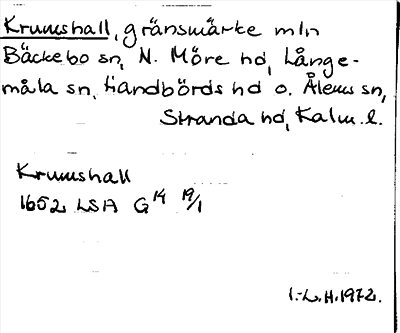 Krumshall, gränsmärke mln
Bäckebo sn, N. Möre hd, Långe-
måla sn, Handbörds hd o. Ålems sn,
Stranda hd, Kalm. l.
Krumshall
1652 LSA G14 19/1
I.-L.H. 1972.